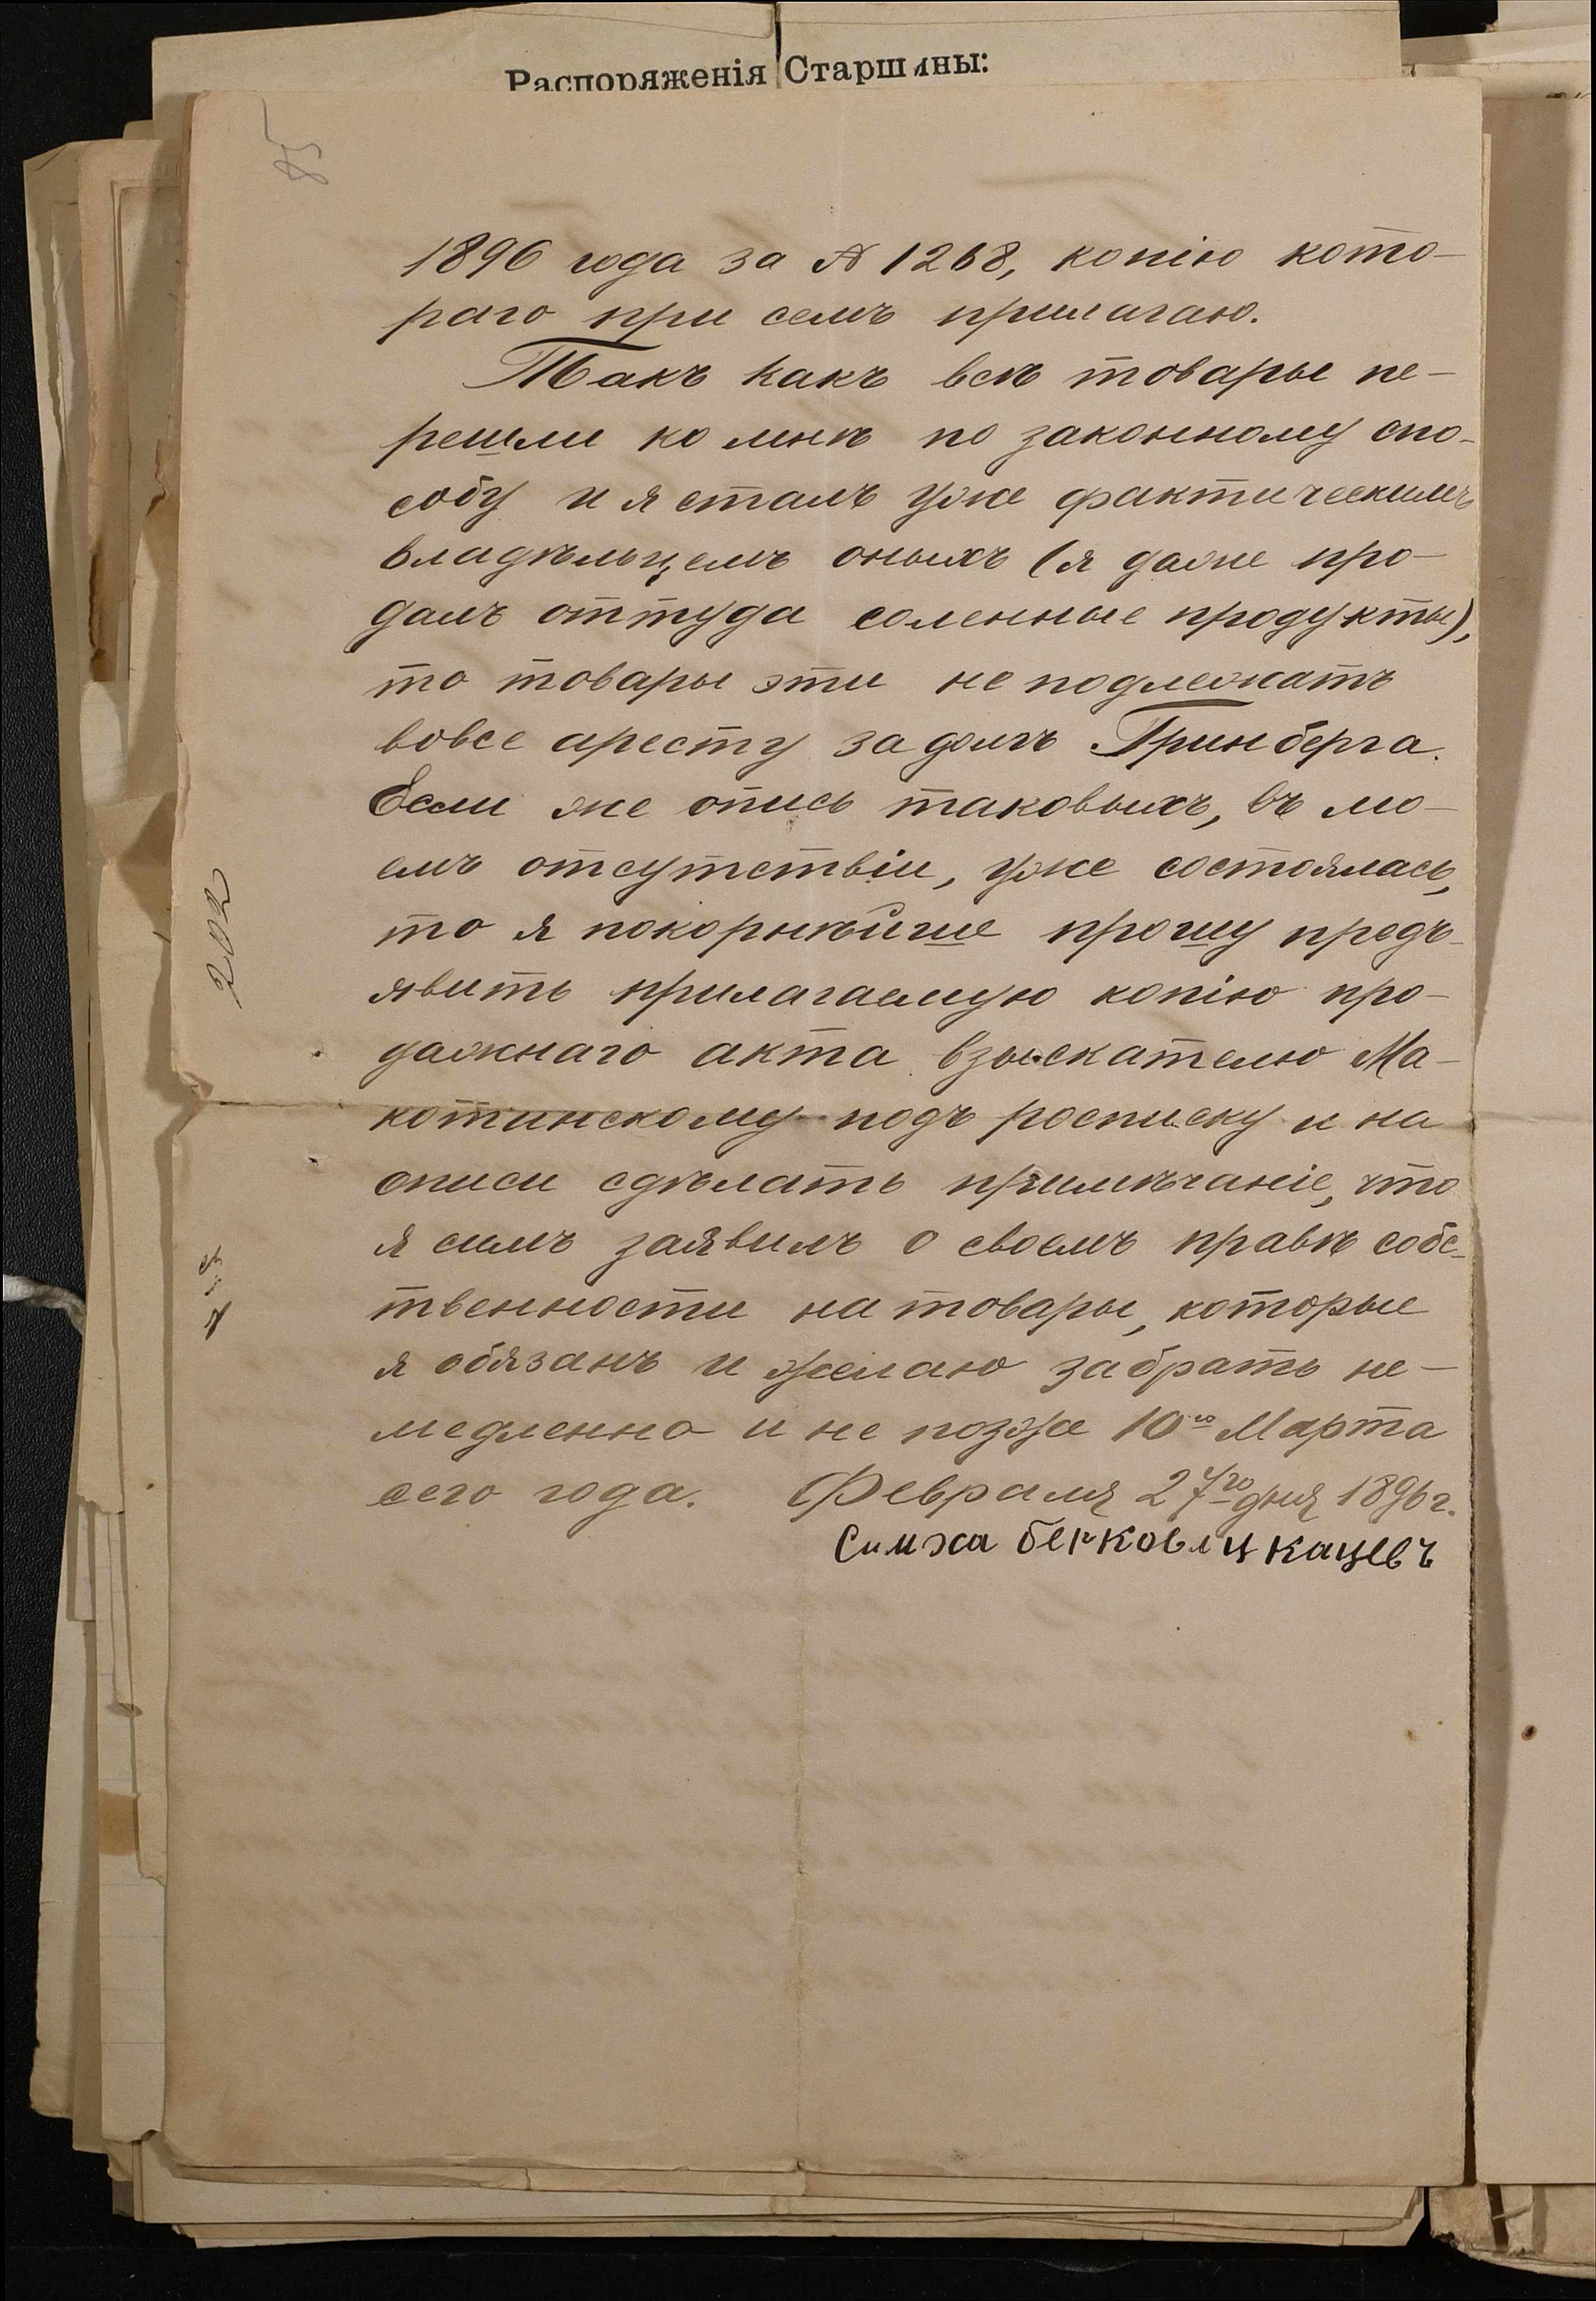 Распоряженія Старшины:
85
1896 года за № 1268, копію кото-
раго при семъ прилагаю.
Такъ какъ всѣ товары пе-
решли ко мнѣ по законному спо-
собу и я сталъ уже фактическимъ
владѣльцемъ оныхъ (я даже про-
далъ оттуда соленные продукты),
то товары эти не подлежатъ
вовсе аресту за долгъ Гринберга.
Если же опись таковыхъ, въ мо-
емъ отсутствіи, уже состоялась,
то я покорнѣйше прошу предъ-
явить прилагаемую копію про-
дажнаго акта взыскателю Ма-
котинскому подъ росписку и на
описи сдѣлать примѣчаніе, что
я симъ заявилъ о своемъ правѣ собс-
твенности на товары, которые
я обязанъ и желаю забрать не-
медленно и не позже 10го Марта
сего года. Февраля 27го дня 1896 г.
Симха Берковиц Кацевъ
202